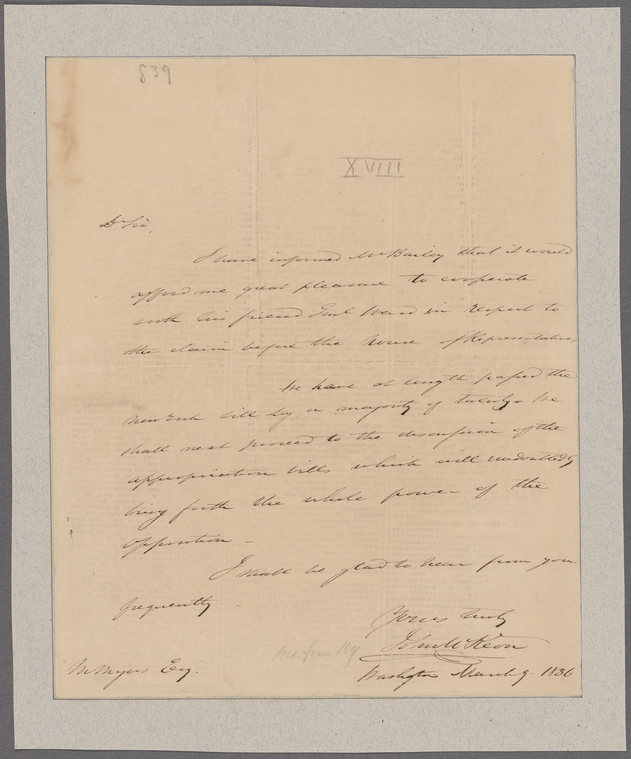 839
XVIII
Dr Sir,
I have informed Mr Bailey that it would
afford me great pleasure to cooperate
with his friend Genl Ward in respect to
the claim before the house of Representatives
We have at length passed the
New York bill by a majority of twenty. We
shall next proceed to the discussion of the
appropriation bills which will undoubtedly
bring forth the whole power of the
opposition -
I shall be glad to hear from you
frequently -
Yours truly
John McKeon
Washington March 9. 1836
M Myers Esq.